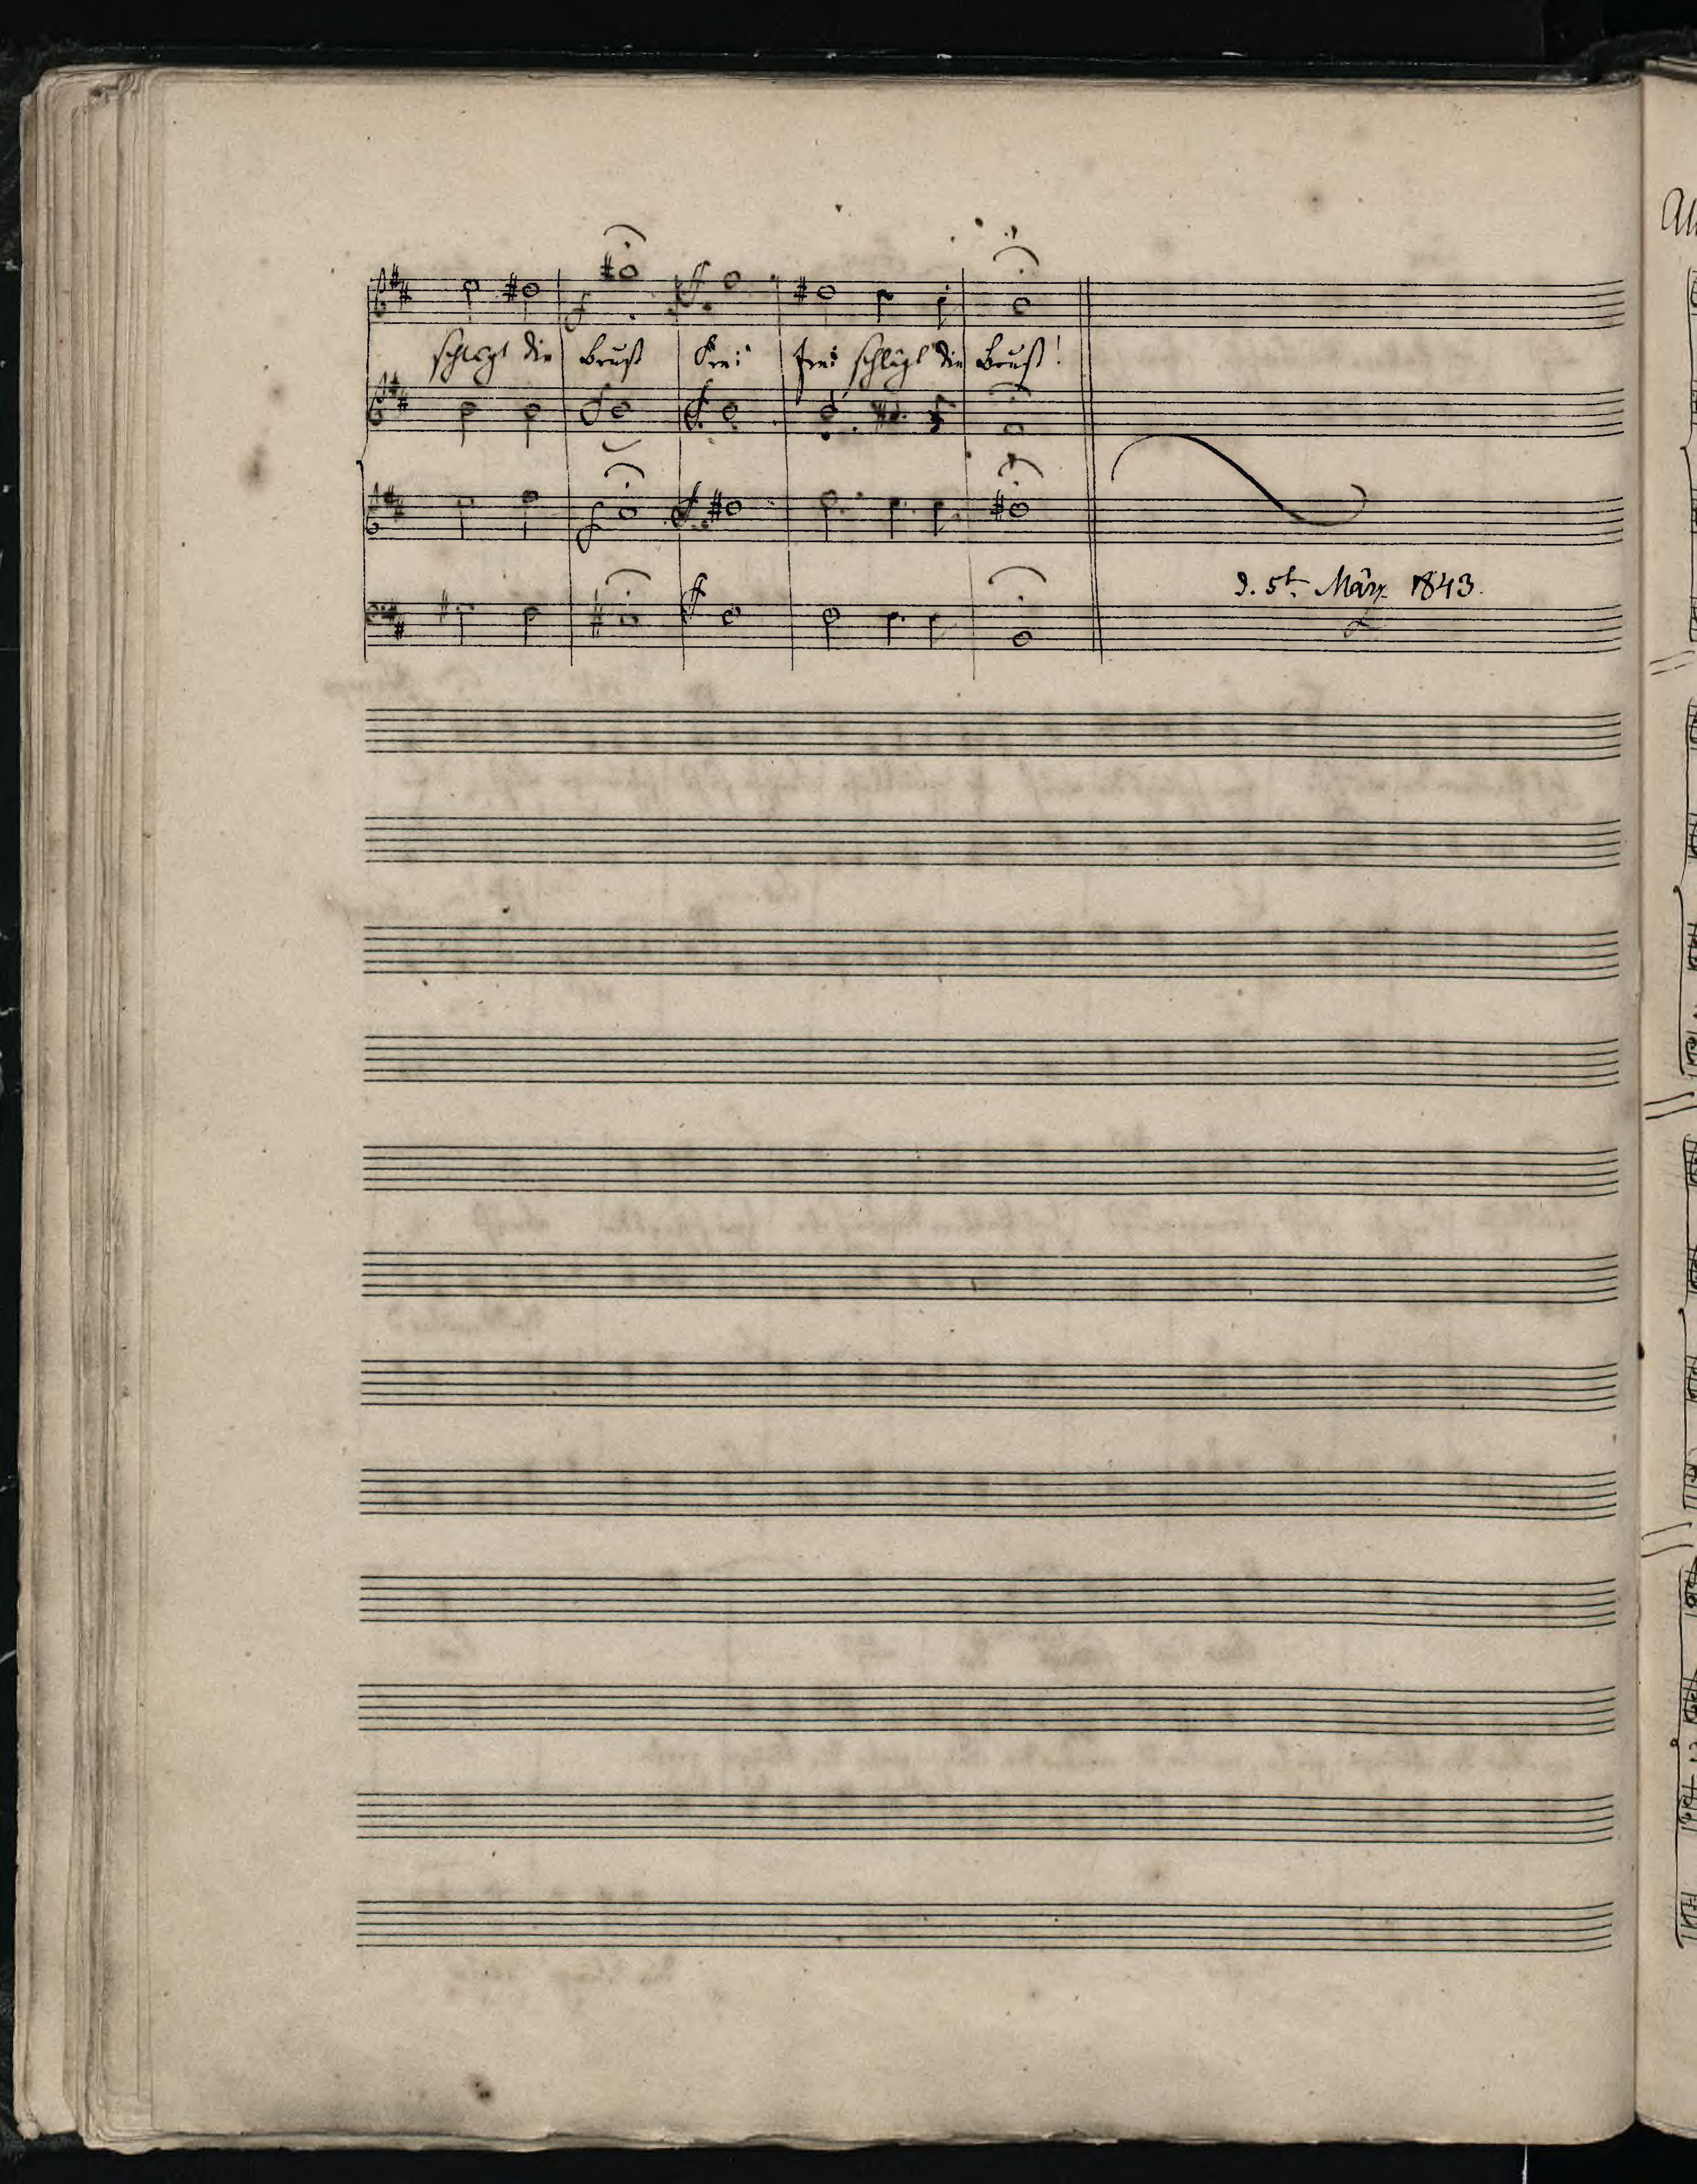 schlägt die Brust Frei frei schlägt die Brust!
d. 5t. März 1843.